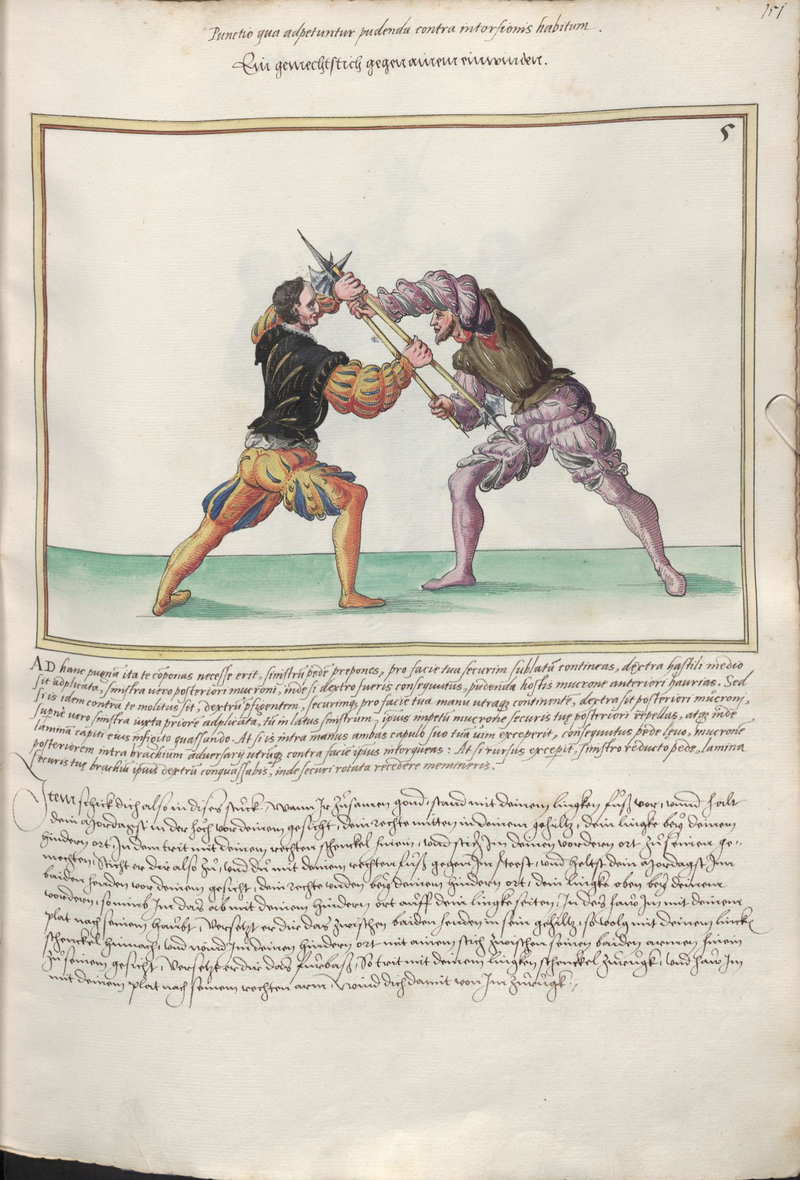 151
Punctio qua adpetuntur pudenda contra intorsionis habitum.
Ein gemechtstich gegen ainem einwinden.
5
AD hanc pugnã ita te cõponas necesse erit, sinistrũ pedẽ prepones, pro facie tua securim sublatã contineas, dextra hastili medio
sit adplicata, sinistra uero posteriori mucroni, inde si dextro fueris consequutus, pudenda hostis mucrone anteriori haurias. Sed
si is idem contra te molitus sit, dextrũ pfigentem, securimq; pro facie tua manu utraq; continentẽ, dextra sit posteriori mucroni,
supne uero sinistra iuxta priorẽ adplicata, tũ in latus sinistrum, ipsius impetũ mucrone securis tuę posteriori repellas, atq; inde
lamina capiti eius infigito quassando. At si is intra manus ambas capulo suo tuã uim exceperit, consequutus pede leuo, mucronẽ
posteriorem intra brachium aduersarij utrũq; contra faciẽ ipsius intorqueas: At si rursus exceperit, sinistro reducto pede, lamina
securis tuę brachiũ ipsius dextrũ conquassabis, inde securi rotata recedere memineris.
Item schick dich also in dises stuck, Wann Ir zůsamen gond, stand mit deinem lingken fůß vor, unnd halt
dein Mordagst in der höch vor deinem gesicht, dein rechte mitten in deinem gehiltz, dein lingke bey deinem
hindern ort, Indem trit mit deinem rechten schenckel hinein, unnd stich Im deinen vordern ort zů seinen ge-
mechten, Sticht er dir also zů, und du mit deinem rechten fůß gegen Im steest, und heltst dein Mordagst Inn
baiden henden vor deinem gesicht, dein rechte unden bey deinem hindern ort, dein lingke oben bey deinem
vordern, so nimb Im das ab mit deinem hindern ort auff dein lingke seiten, In des haw In mit deinem
plat nach seinem haubt, Versetzt er dir das zwischen baiden henden in sein gehiltz, so volg mit deinem linck
schenckel hinnach, und wind Im deinen hindern ort mit ainem stich zwischen seinen baiden armen hinein
zů seinem gesicht, Versetzt er dir das fürbaß, So trit mit deinem lingken schenckel zůrugk, und haw Im
mit deinem plat nach seinem rechten arm, Wind dich damit von Im zůrugk.